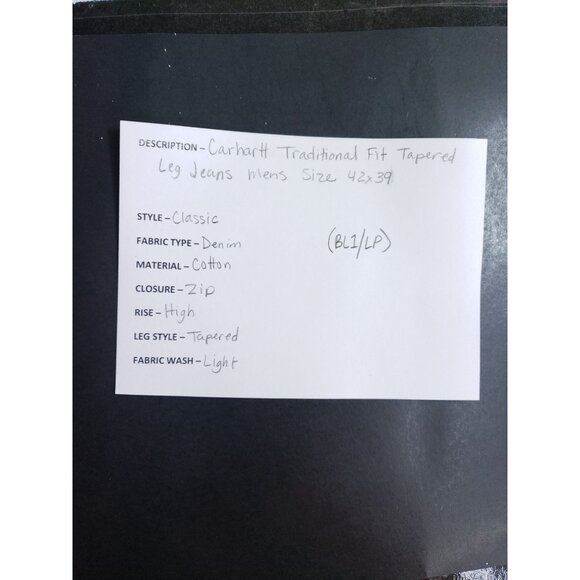 DESCRIPTION - Carhartt Traditional Fit Tapered
Leg Jeans Mens Size 42x39
STYLE - Classic
FABRIC TYPE - Denim (BL1/LP)
MATERIAL - Cotton
CLOSURE - Zip
RISE - High
LEG STYLE - Tapered
FABRIC WASH - Light